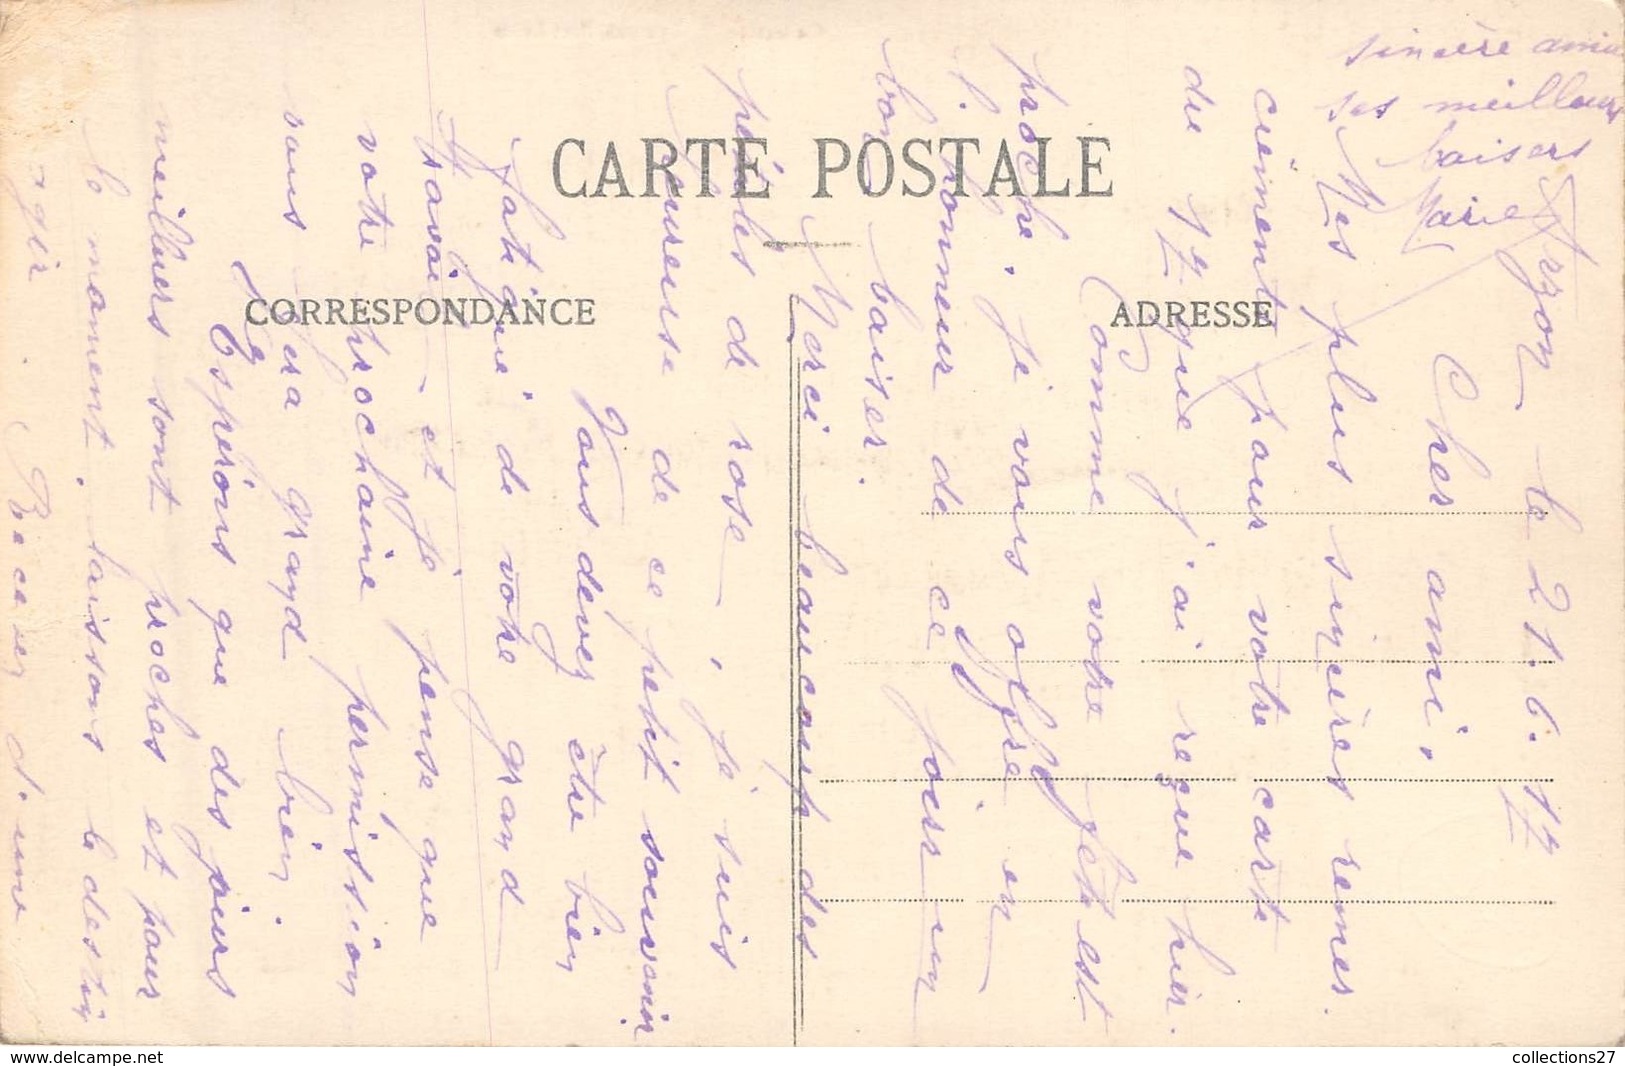 CARTE POSTALE
CORRESPONDANCE
ADRESSE
Arzon le 21.6.17
Cher ami,
Mes plus sincères remer-
ciements pour votre carte
du 17 que j'ai reçue hier.
Comme votre fête est
proche, je vous offre en
l'honneur de ce jour un
bon baiser.
Merci beaucoup des
pétales de rose, je suis
heureuse de ce petit souvenir.
Vous devez être bien
fatigué de votre grand
travail et je pense que
votre prochaine permission
vous fera grand bien.
Espérons que des jours
meilleurs sont proches et pour
le moment, laissons le destin
agir. Recevez d'une
sincère amie
ses meilleurs
baisers
Marie
www.delcampe.net
collections27